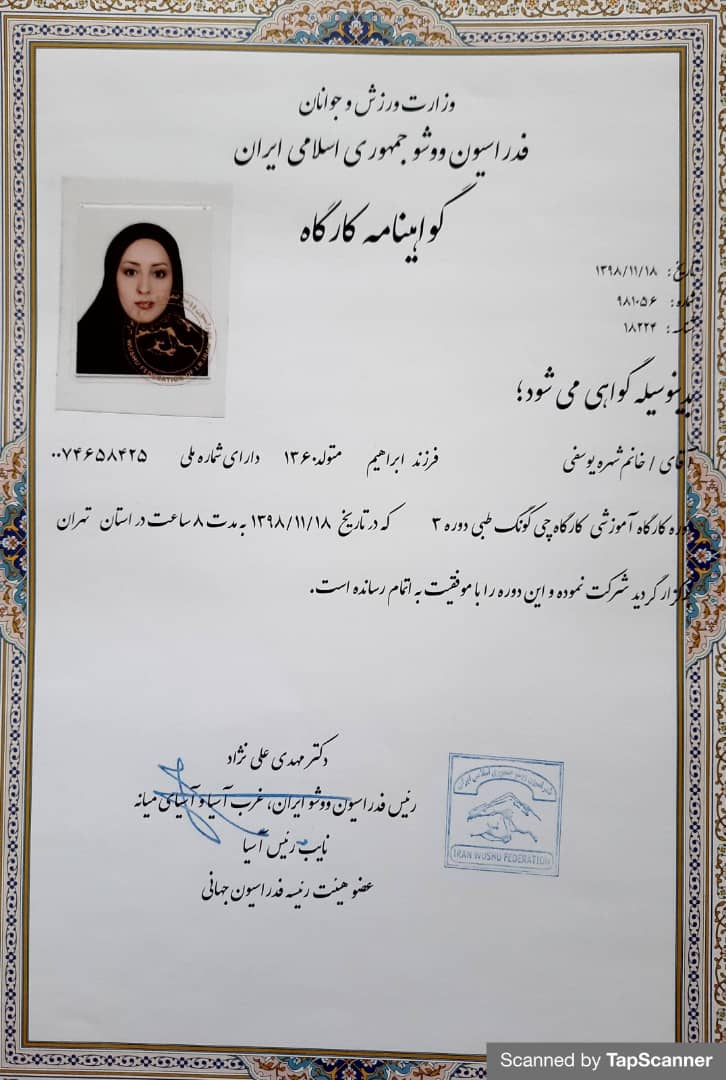 وزارت ورزش و جوانان
فدراسیون ووشو جمهوری اسلامی ایران
گواهینامه کارگاه
تاریخ: ۱۳۹۸/۱۱/۱۸
شماره: ۹۸۱۰۵۶
۱۸۲۲۴
بدینوسیله گواهی می شود؛
آقای / خانم شهره یوسفی فرزند ابراهیم متولد ۱۳۶۰ دارای شماره ملی ۰۰۷۴۶۵۸۴۲۵
دوره کارگاه آموزشی کارگاه چی کونگ طبی دوره ۳ که در تاریخ ۱۳۹۸/۱۱/۱۸ به مدت ۸ ساعت در استان تهران
برگزار گردید شرکت نموده و این دوره را با موفقیت به اتمام رسانده است.
دکتر مهدی علی نژاد
رئیس فدراسیون ووشو ایران، غرب آسیا و آسیای میانه
نایب رئیس آسیا
عضو هیئت رئیسه فدراسیون جهانی
فدراسیون ووشو جمهوری اسلامی ایران
IRAN WUSHU FEDERATION
Scanned by TapScanner